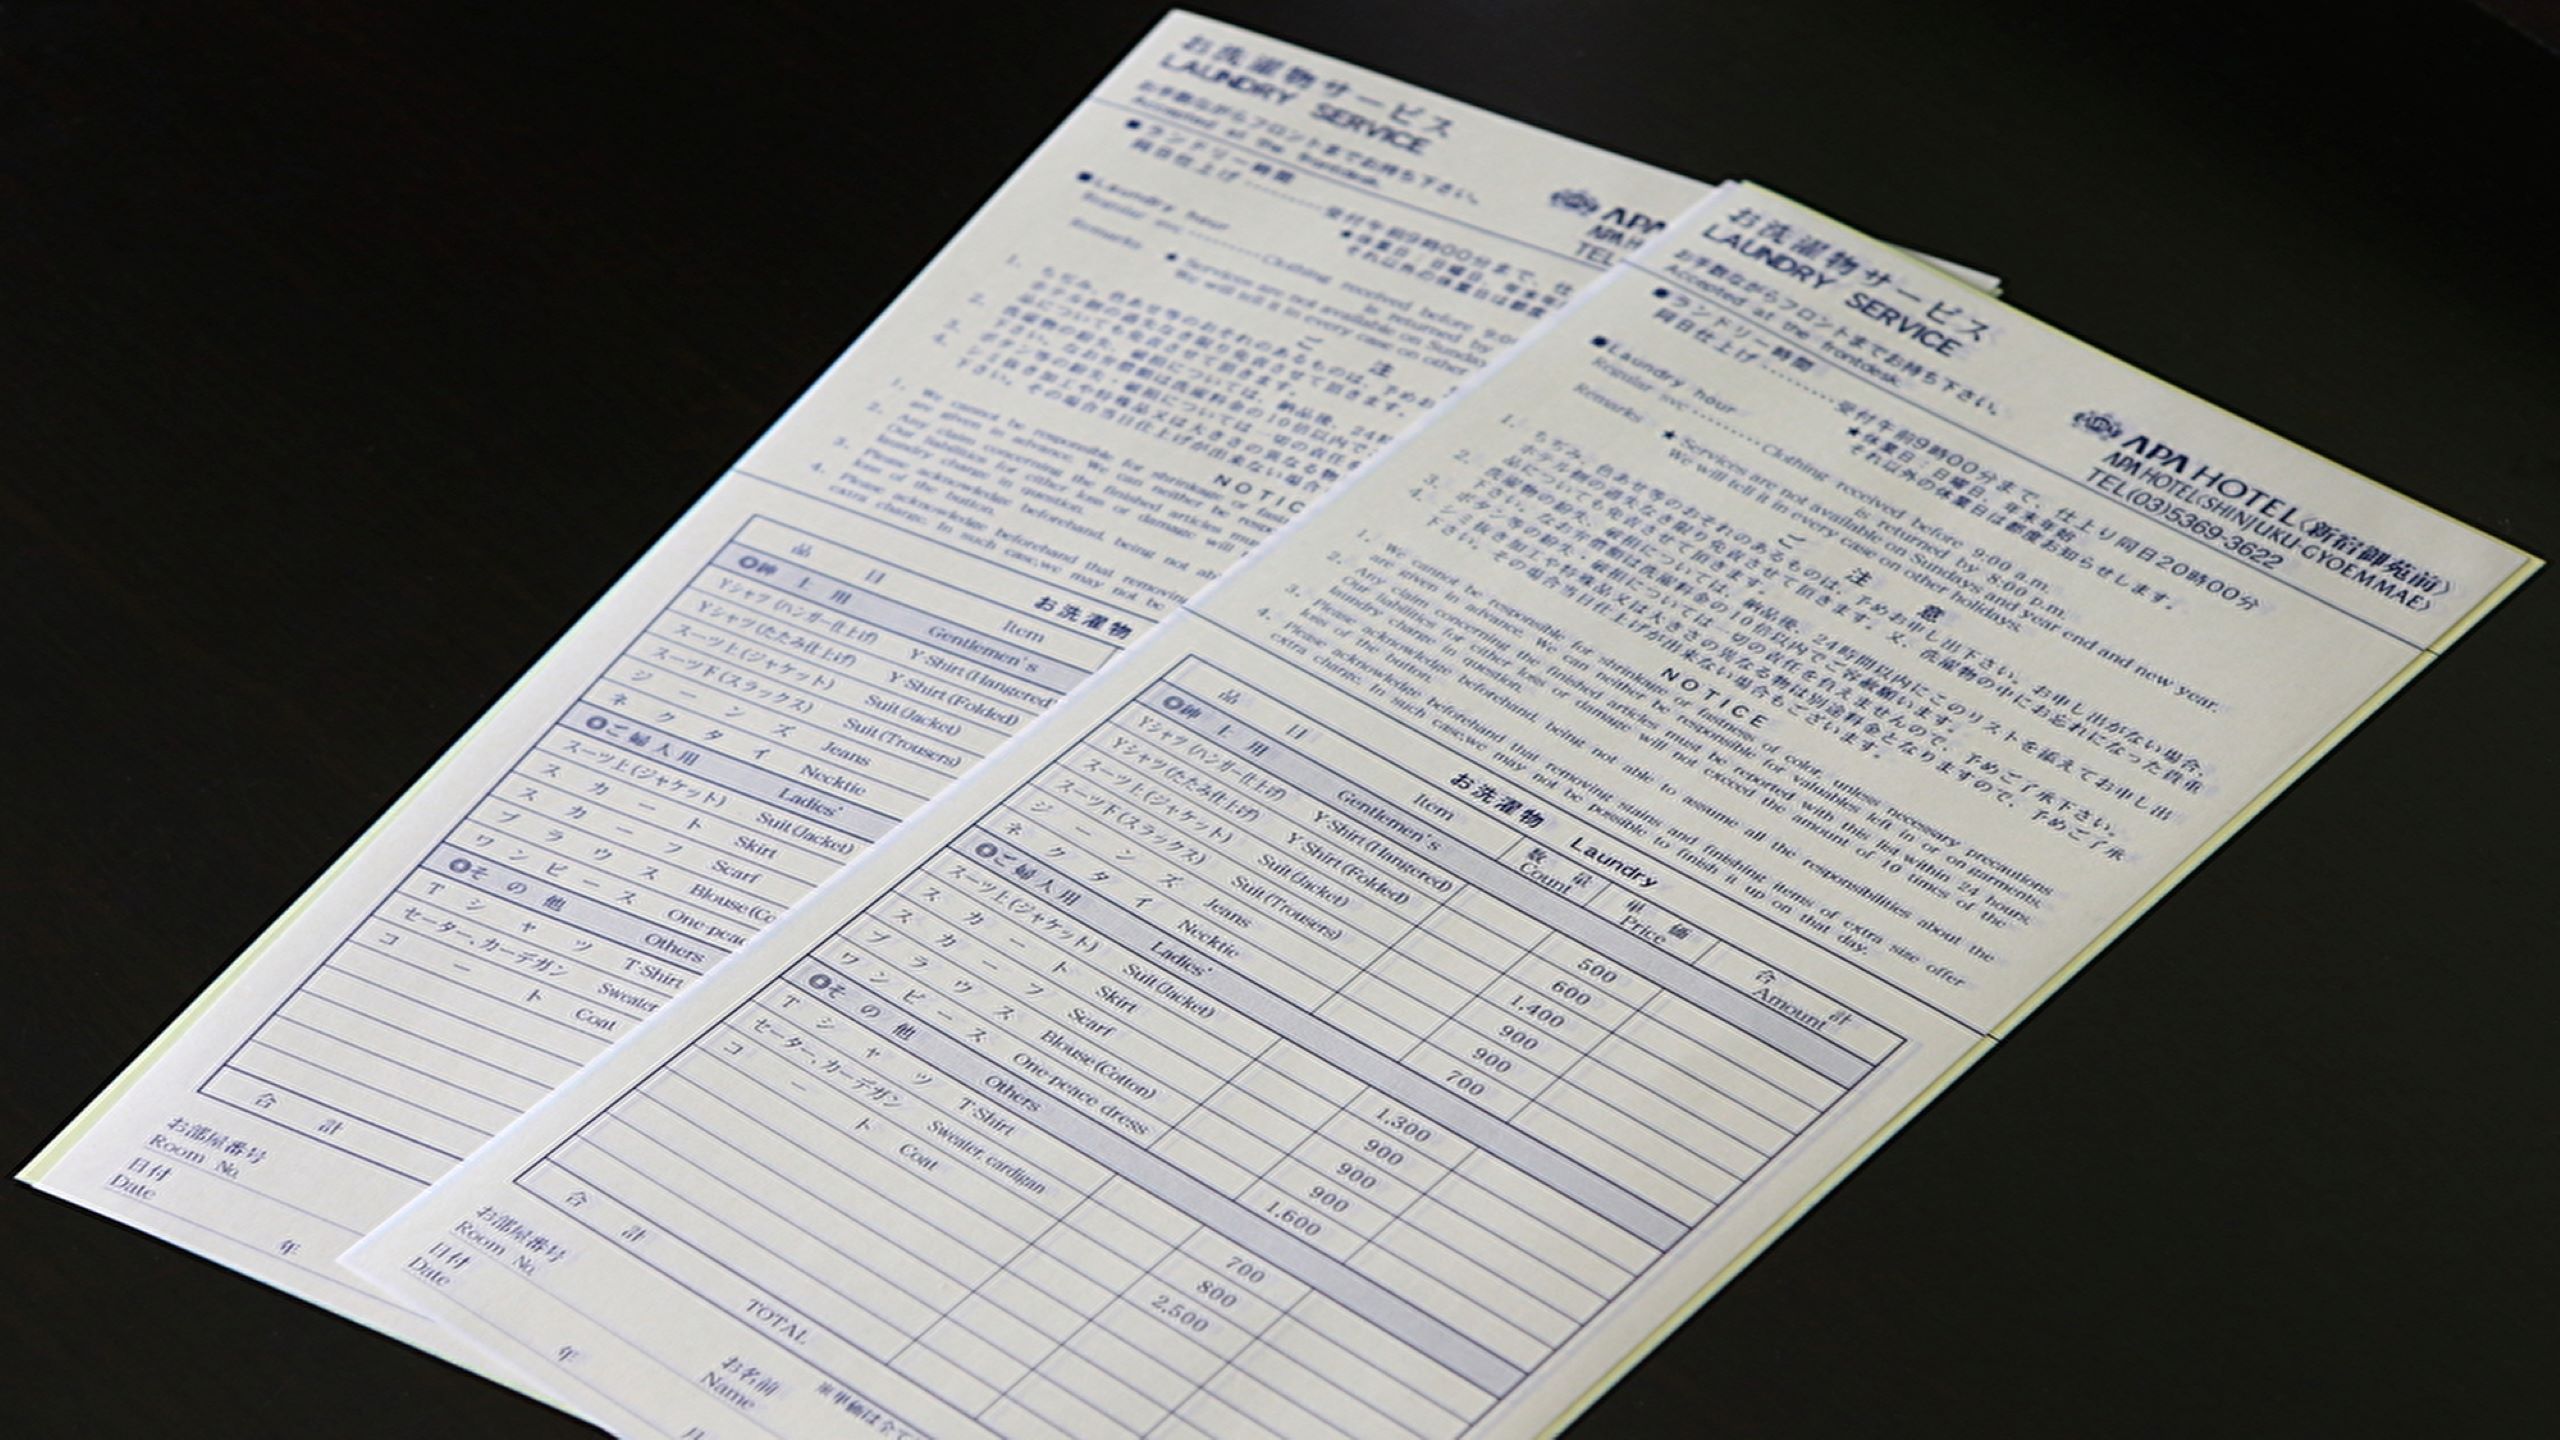 お洗濯物サービス
LAUNDRY SERVICE
お手数ながらフロントまでお持ち下さい。
Accepted at the frontdesk.
■ランドリー時間
同日仕上げ
APA
APA H
TEL
■Laundry hour
Regular svc.
Remarks
NOTIC
お洗濯物
品 目 Item
◎紳士用 Gentlemen's
Yシャツ(ハンガー仕上げ) Y-Shirt(Hangered)
Yシャツ(たたみ仕上げ) Y-Shirt(Folded)
スーツ上(ジャケット) Suit(Jacket)
スーツ下(スラックス) Suit(Trousers)
ジーンズ Jeans
ネクタイ Necktie
◎ご婦人用 Ladies'
スーツ上(ジャケット) Suit(Jacket)
スカート Skirt
スカーフ Scarf
ブラウス Blouse(Co
ワンピース One-peac
◎その他 Others
Tシャツ T-Shirt
セーター、カーデガン Sweater
コート Coat
合 計
お部屋番号
Room No.
日付
Date
年
お洗濯物サービス
LAUNDRY SERVICE
お手数ながらフロントまでお持ち下さい。
Accepted at the frontdesk.
APA HOTEL〈新宿御苑前〉
APA HOTEL〈SHINJUKU-GYOEMMAE〉
TEL(03)5369-3622
■ランドリー時間
同日仕上げ………受付午前9時00分まで、仕上り同日20時00分
★休業日：日曜日、年末年始
それ以外の休業日は都度お知らせします。
■Laundry hour
Regular svc.………Clothing received before 9:00 a.m.
is returned by 8:00 p.m.
Remarks ★Services are not available on Sundays and year end and new year.
We will tell it in every case on other holidays.
ご 注 意
1. ちぢみ、色あせ等のおそれのあるものは、予めお申し出下さい。お申し出がない場合、
ホテル側の過失なき限り免責させて頂きます。又、洗濯物の中にお忘れになった貴重
品についても免責させて頂きます。
2. 洗濯物の紛失、破損については、納品後、24時間以内にこのリストを添えてお申し出
下さい。なお弁償額は洗濯料金の10倍以内でご容赦願います。
3. ボタン等の紛失・破損については一切の責任を負えませんので、予めご了承下さい。
4. シミ抜き加工や特殊品又は大きさの異なる物は別途料金となりますので、予めご了承
下さい。その場合当日仕上げが出来ない場合もございます。
NOTICE
1. We cannot be responsible for shrinkage or fastness of color, unless necessary precautions
are given in advance. We can neither be responsible for valuables left in or on garments.
2. Any claim concerning the finished articles must be reported with this list within 24 hours.
Our liabilities for either loss or damage will not exceed the amount of 10 times of the
laundry charge in question.
3. Please acknowledge beforehand, being not able to assume all the responsibilities about the
loss of the button.
4. Please acknowledge beforehand that removing stains and finishing items of extra size offer
extra charge. In such case,we may not be possible to finish it up on that day.
お洗濯物 Laundry
品 目 Item 数量 Count 単価 Price 合計 Amount
◎紳士用 Gentlemen's
Yシャツ(ハンガー仕上げ) Y-Shirt(Hangered) 500
Yシャツ(たたみ仕上げ) Y-Shirt(Folded) 600
スーツ上(ジャケット) Suit(Jacket) 1,400
スーツ下(スラックス) Suit(Trousers) 900
ジーンズ Jeans 900
ネクタイ Necktie 700
◎ご婦人用 Ladies'
スーツ上(ジャケット) Suit(Jacket) 1,300
スカート Skirt 900
スカーフ Scarf 900
ブラウス Blouse(Cotton) 900
ワンピース One-peace dress 1,600
◎その他 Others
Tシャツ T-Shirt 700
セーター、カーデガン Sweater, cardigan 800
コート Coat 2,500
合 計 TOTAL
※単価は全て
お部屋番号
Room No.
お名前
Name
日付
Date
年 月